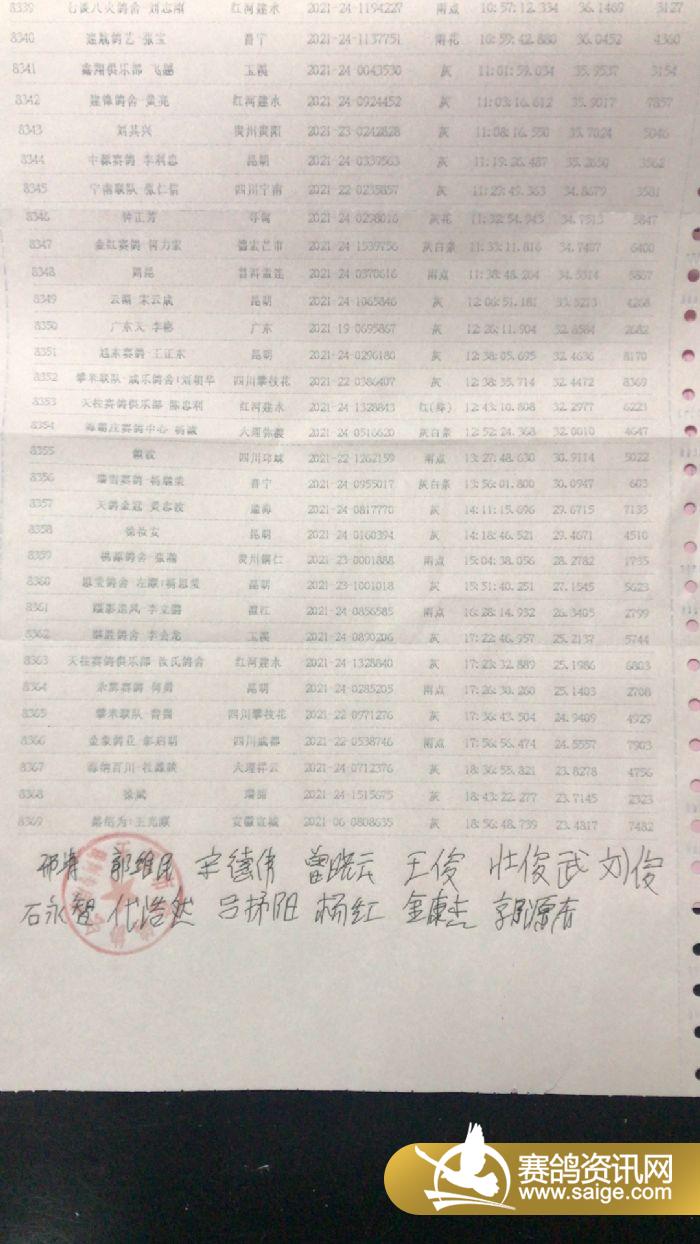 8339 七彩八火鸽舍 刘志刚 红河建水 2021-24-1194227 雨点 10:57:12.334 36.1469 3127
8340 建航鸽艺 张宝 晋宁 2021-24-1137751 雨花 10:59:42.880 36.0452 4360
8341 鑫翔俱乐部 飞越 玉溪 2021-24-0043530 灰 11:01:59.034 35.9537 3154
8342 建锋鸽舍 黄亮 红河建水 2021-24-0924452 灰 11:03:16.612 35.9017 7857
8343 刘其兴 贵州贵阳 2021-23-0242828 灰 11:08:16.550 35.7024 5046
8344 中源赛鸽 李利忠 昆明 2021-24-0339563 灰 11:19:26.487 35.2650 3562
8345 宁南联队 张仁信 四川宁南 2021-22-0235857 灰 11:29:49.363 34.8679 3581
8346 钟正芳 寻甸 2021-24-0298016 灰花 11:32:54.943 34.7513 5847
8347 金红赛鸽 何力家 德宏芒市 2021-24-1539756 灰白条 11:33:11.816 34.7407 6400
8348 周昆 普洱孟连 2021-24-0370616 雨点 11:38:48.264 34.5314 5867
8349 云霸 宋云成 昆明 2021-24-1065846 灰 12:06:51.181 33.5213 4268
8350 广东天 李彬 广东 2021-19-0695867 灰 12:26:11.904 32.8584 2682
8351 旭东赛鸽-王正东 昆明 2021-24-0296180 灰 12:38:05.695 32.4636 8170
8352 攀米联队-威乐鸽舍:刘朝华 四川攀枝花 2021-22-0386407 灰 12:38:35.714 32.4472 8369
8353 天柱赛鸽俱乐部 陈忠利 红河建水 2021-24-1328843 红(绛) 12:43:10.808 32.2977 6221
8354 赛鸽中心 杨诚 大理弥渡 2021-24-0516620 灰白条 12:52:24.368 32.0010 4647
8355 四川邛崃 2021-22-1262159 雨点 13:27:48.630 30.9114 5022
8356 瑞雪赛鸽-杨瑞荣 晋宁 2021-24-0955017 灰白条 13:56:01.800 30.0947 603
8357 天鸽金冠 黄志波 通海 2021-24-0817770 灰 14:11:15.696 29.6715 7135
8358 徐汝安 昆明 2021-24-0160394 灰 14:18:46.521 29.4671 4510
8359 桃源鸽舍-张瀚 贵州铜仁 2021-23-0001888 雨点 15:04:38.056 28.2782 1755
8360 思莹鸽舍 左顺:杨思莹 昆明 2021-23-1001018 灰 15:51:40.251 27.1545 5623
8361 追风 李立鹏 澄江 2021-24-0856585 雨点 16:28:14.932 26.3405 2799
8362 鸽舍 李会龙 玉溪 2021-24-0890206 灰 17:22:46.957 25.2137 5744
8363 天柱赛鸽俱乐部 氏鸽舍 红河建水 2021-24-1328840 灰 17:23:32.889 25.1986 6803
8364 永辉赛鸽 何勇 昆明 2021-24-0285205 雨点 17:26:30.260 25.1403 2708
8365 攀米联队 曹国 四川攀枝花 2021-22-0971276 灰 17:36:43.504 24.9409 4929
8366 金象鸽业 彭启明 四川成都 2021-22-0538746 雨点 17:56:56.474 24.5557 7903
8367 海纳百川-杜 大理祥云 2021-24-0712376 灰 18:36:55.821 23.8278 4756
8368 徐斌 瑞丽 2021-24-1515675 灰 18:43:22.277 23.7145 2323
8369 路绍为:王光顺 安徽宣城 2021-06-0808635 灰 18:56:48.739 23.4817 7482
郭维昆 宋德伟 曾晓云 王俊 壮俊武 刘俊
石永智 代浩然 吕扬阳 杨红 金康杰 郭源杏
赛鸽资讯网
www.saige.com